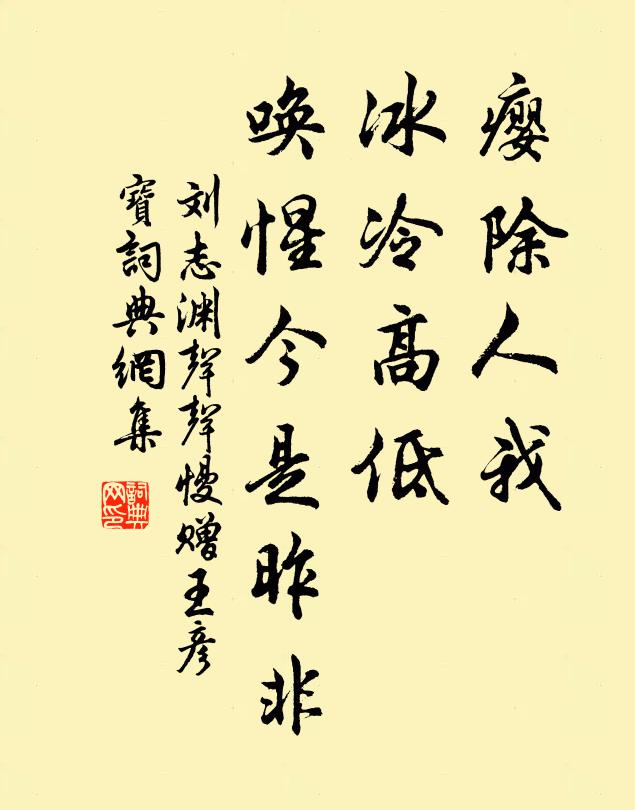 瘿除人我
冰冷高低
唤惺今是昨非
刘志渊聲聲慢赠王彦
寶詞典網集
詞典网印